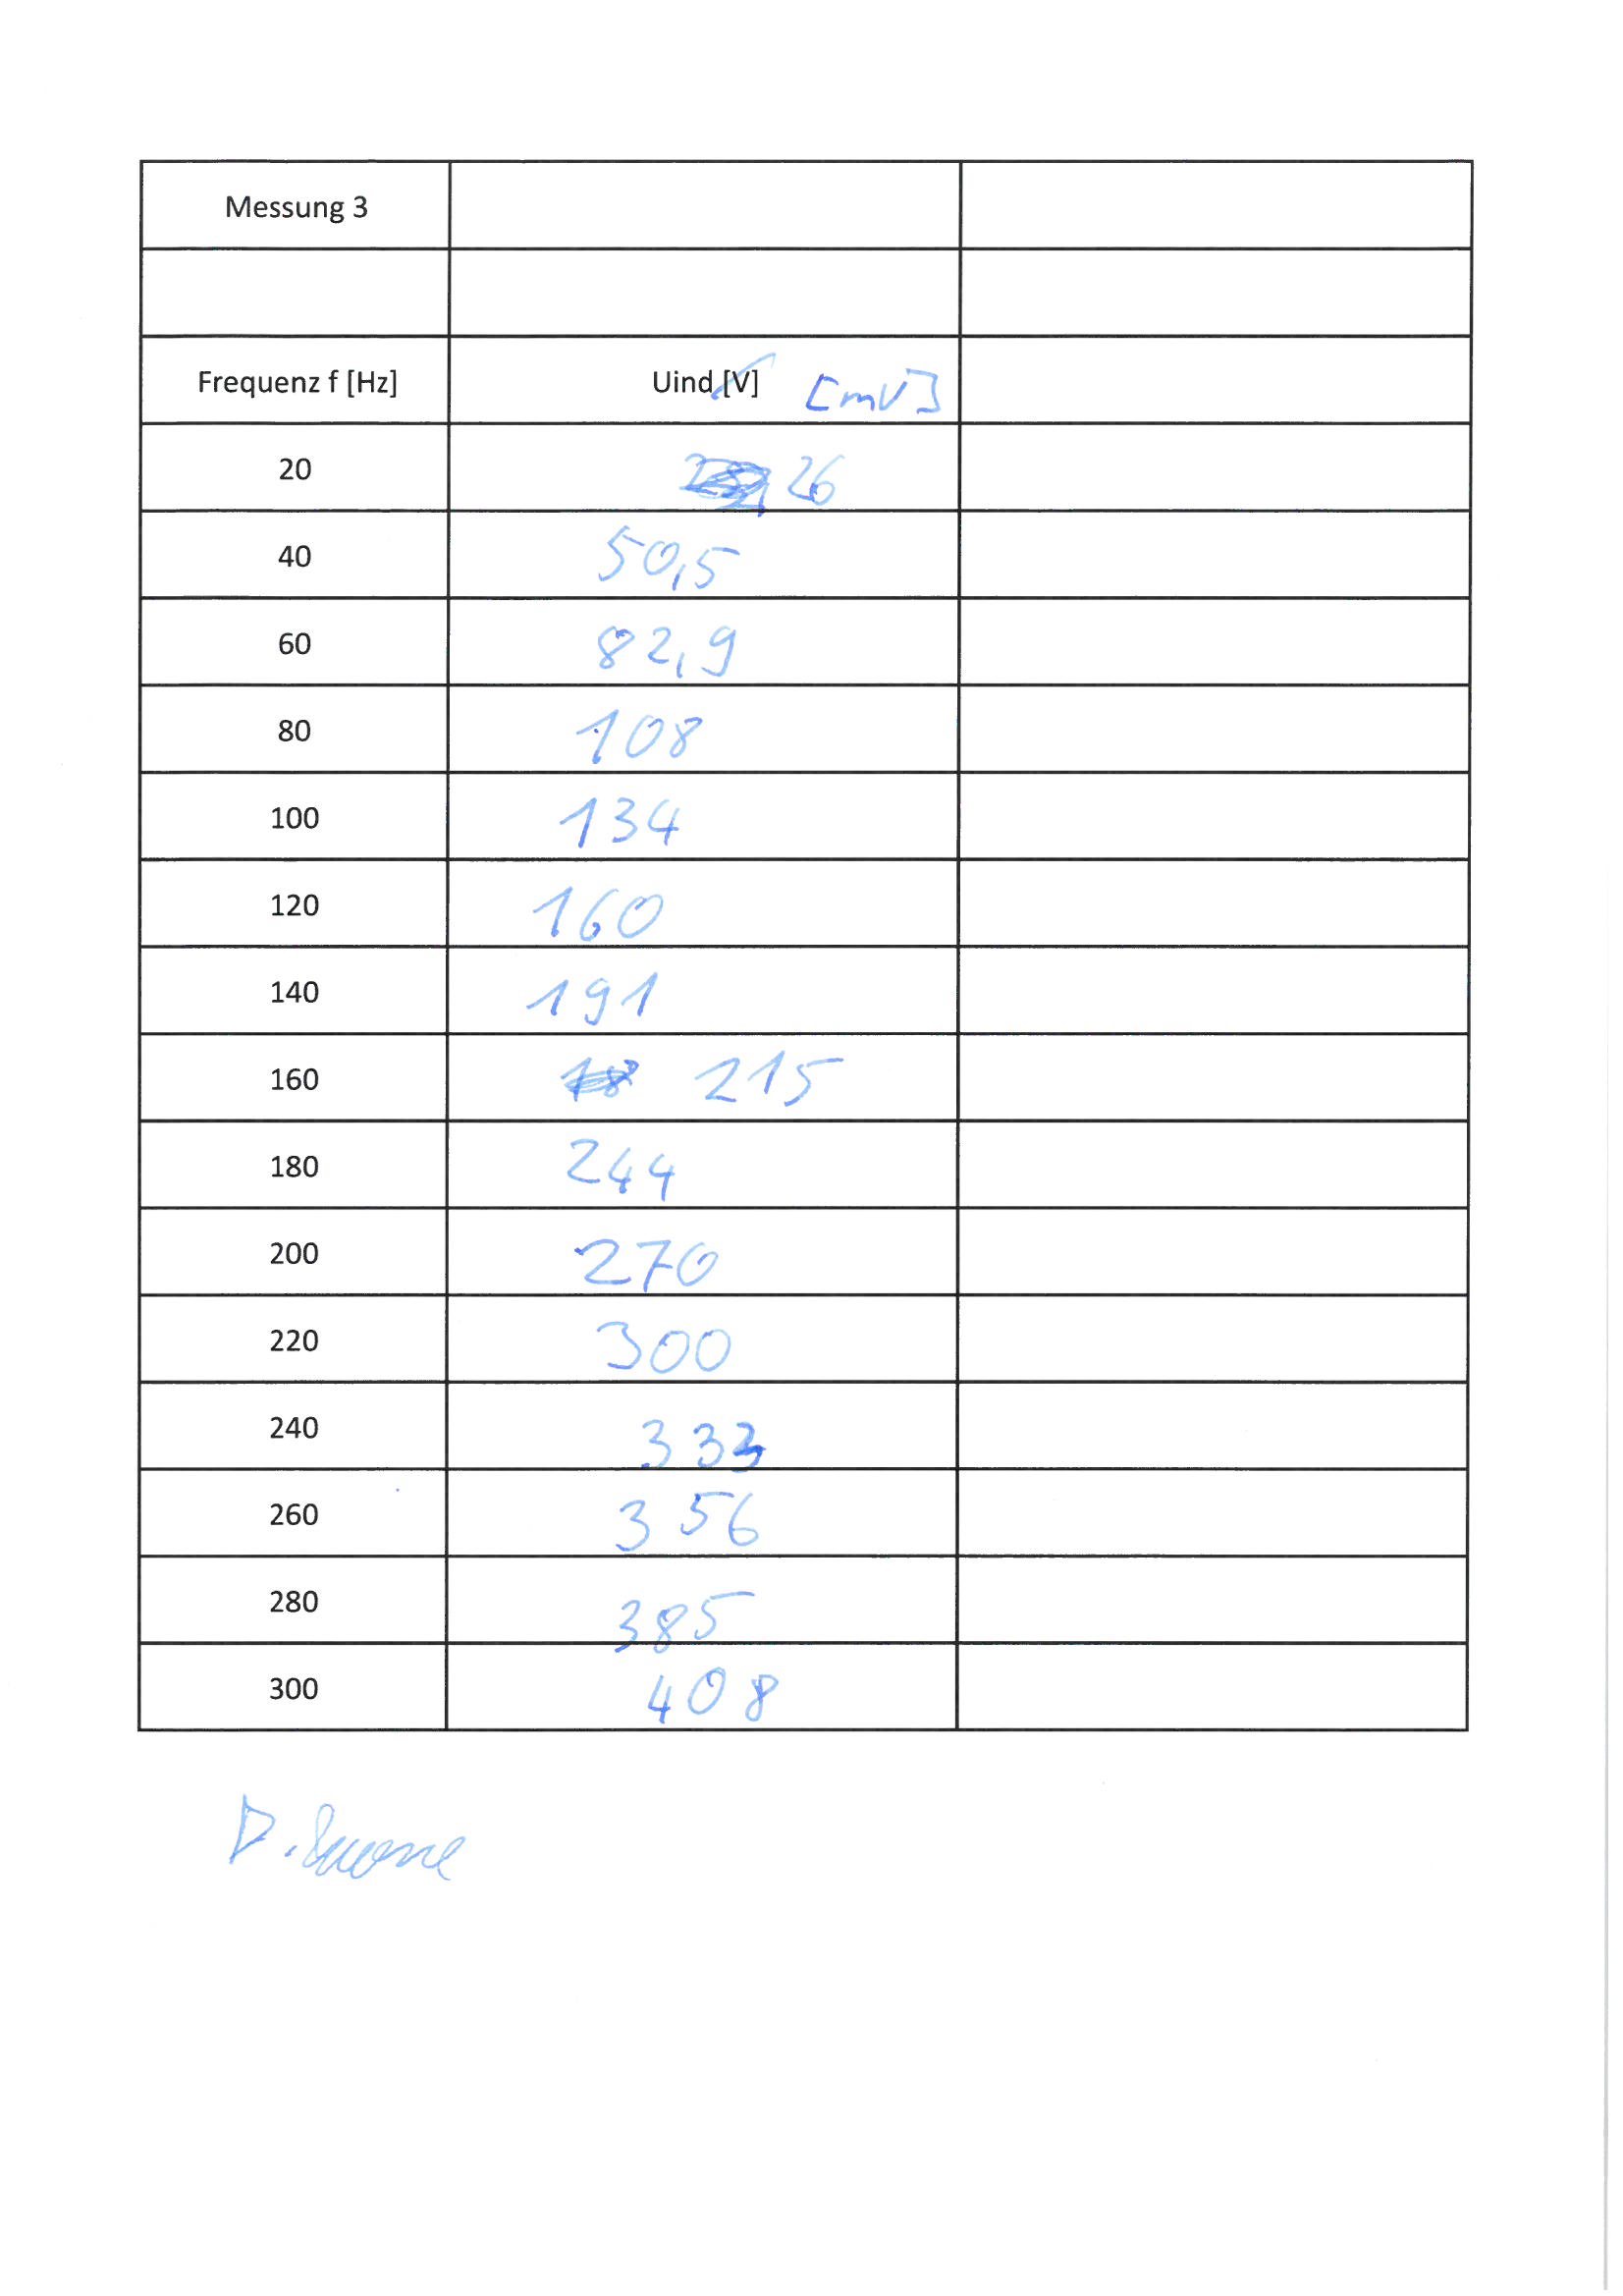 Messung 3
Frequenz f [Hz] Uind [V] [mV]
20 26
40 50,5
60 82,9
80 108
100 134
120 160
140 191
160 18 215
180 244
200 270
220 300
240 333
260 356
280 385
300 408
D.